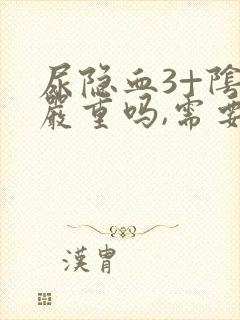 尿隐血3十陰
嚴重吗,需要
漢胄